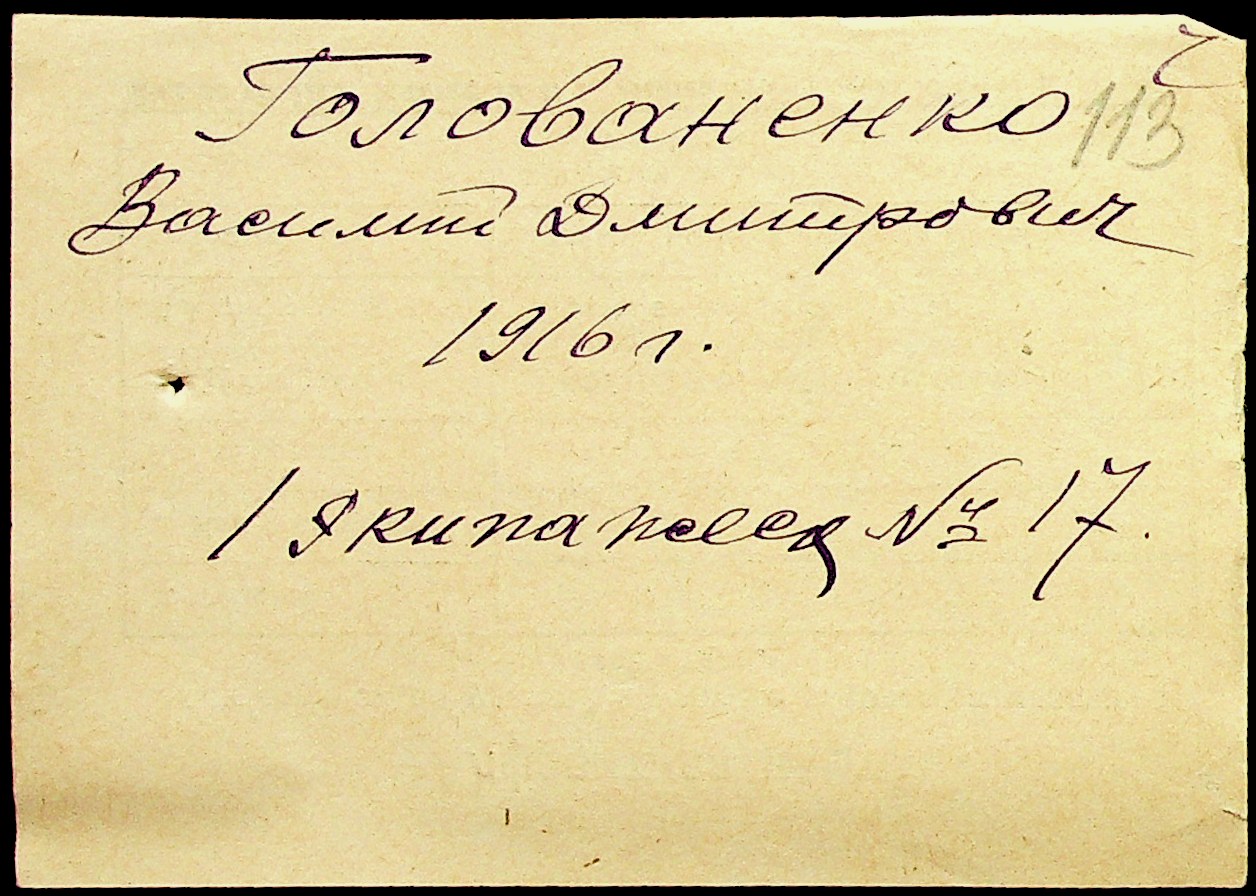 Голованенко 113
Василий Дмитрович
1916 г.
№ 17.